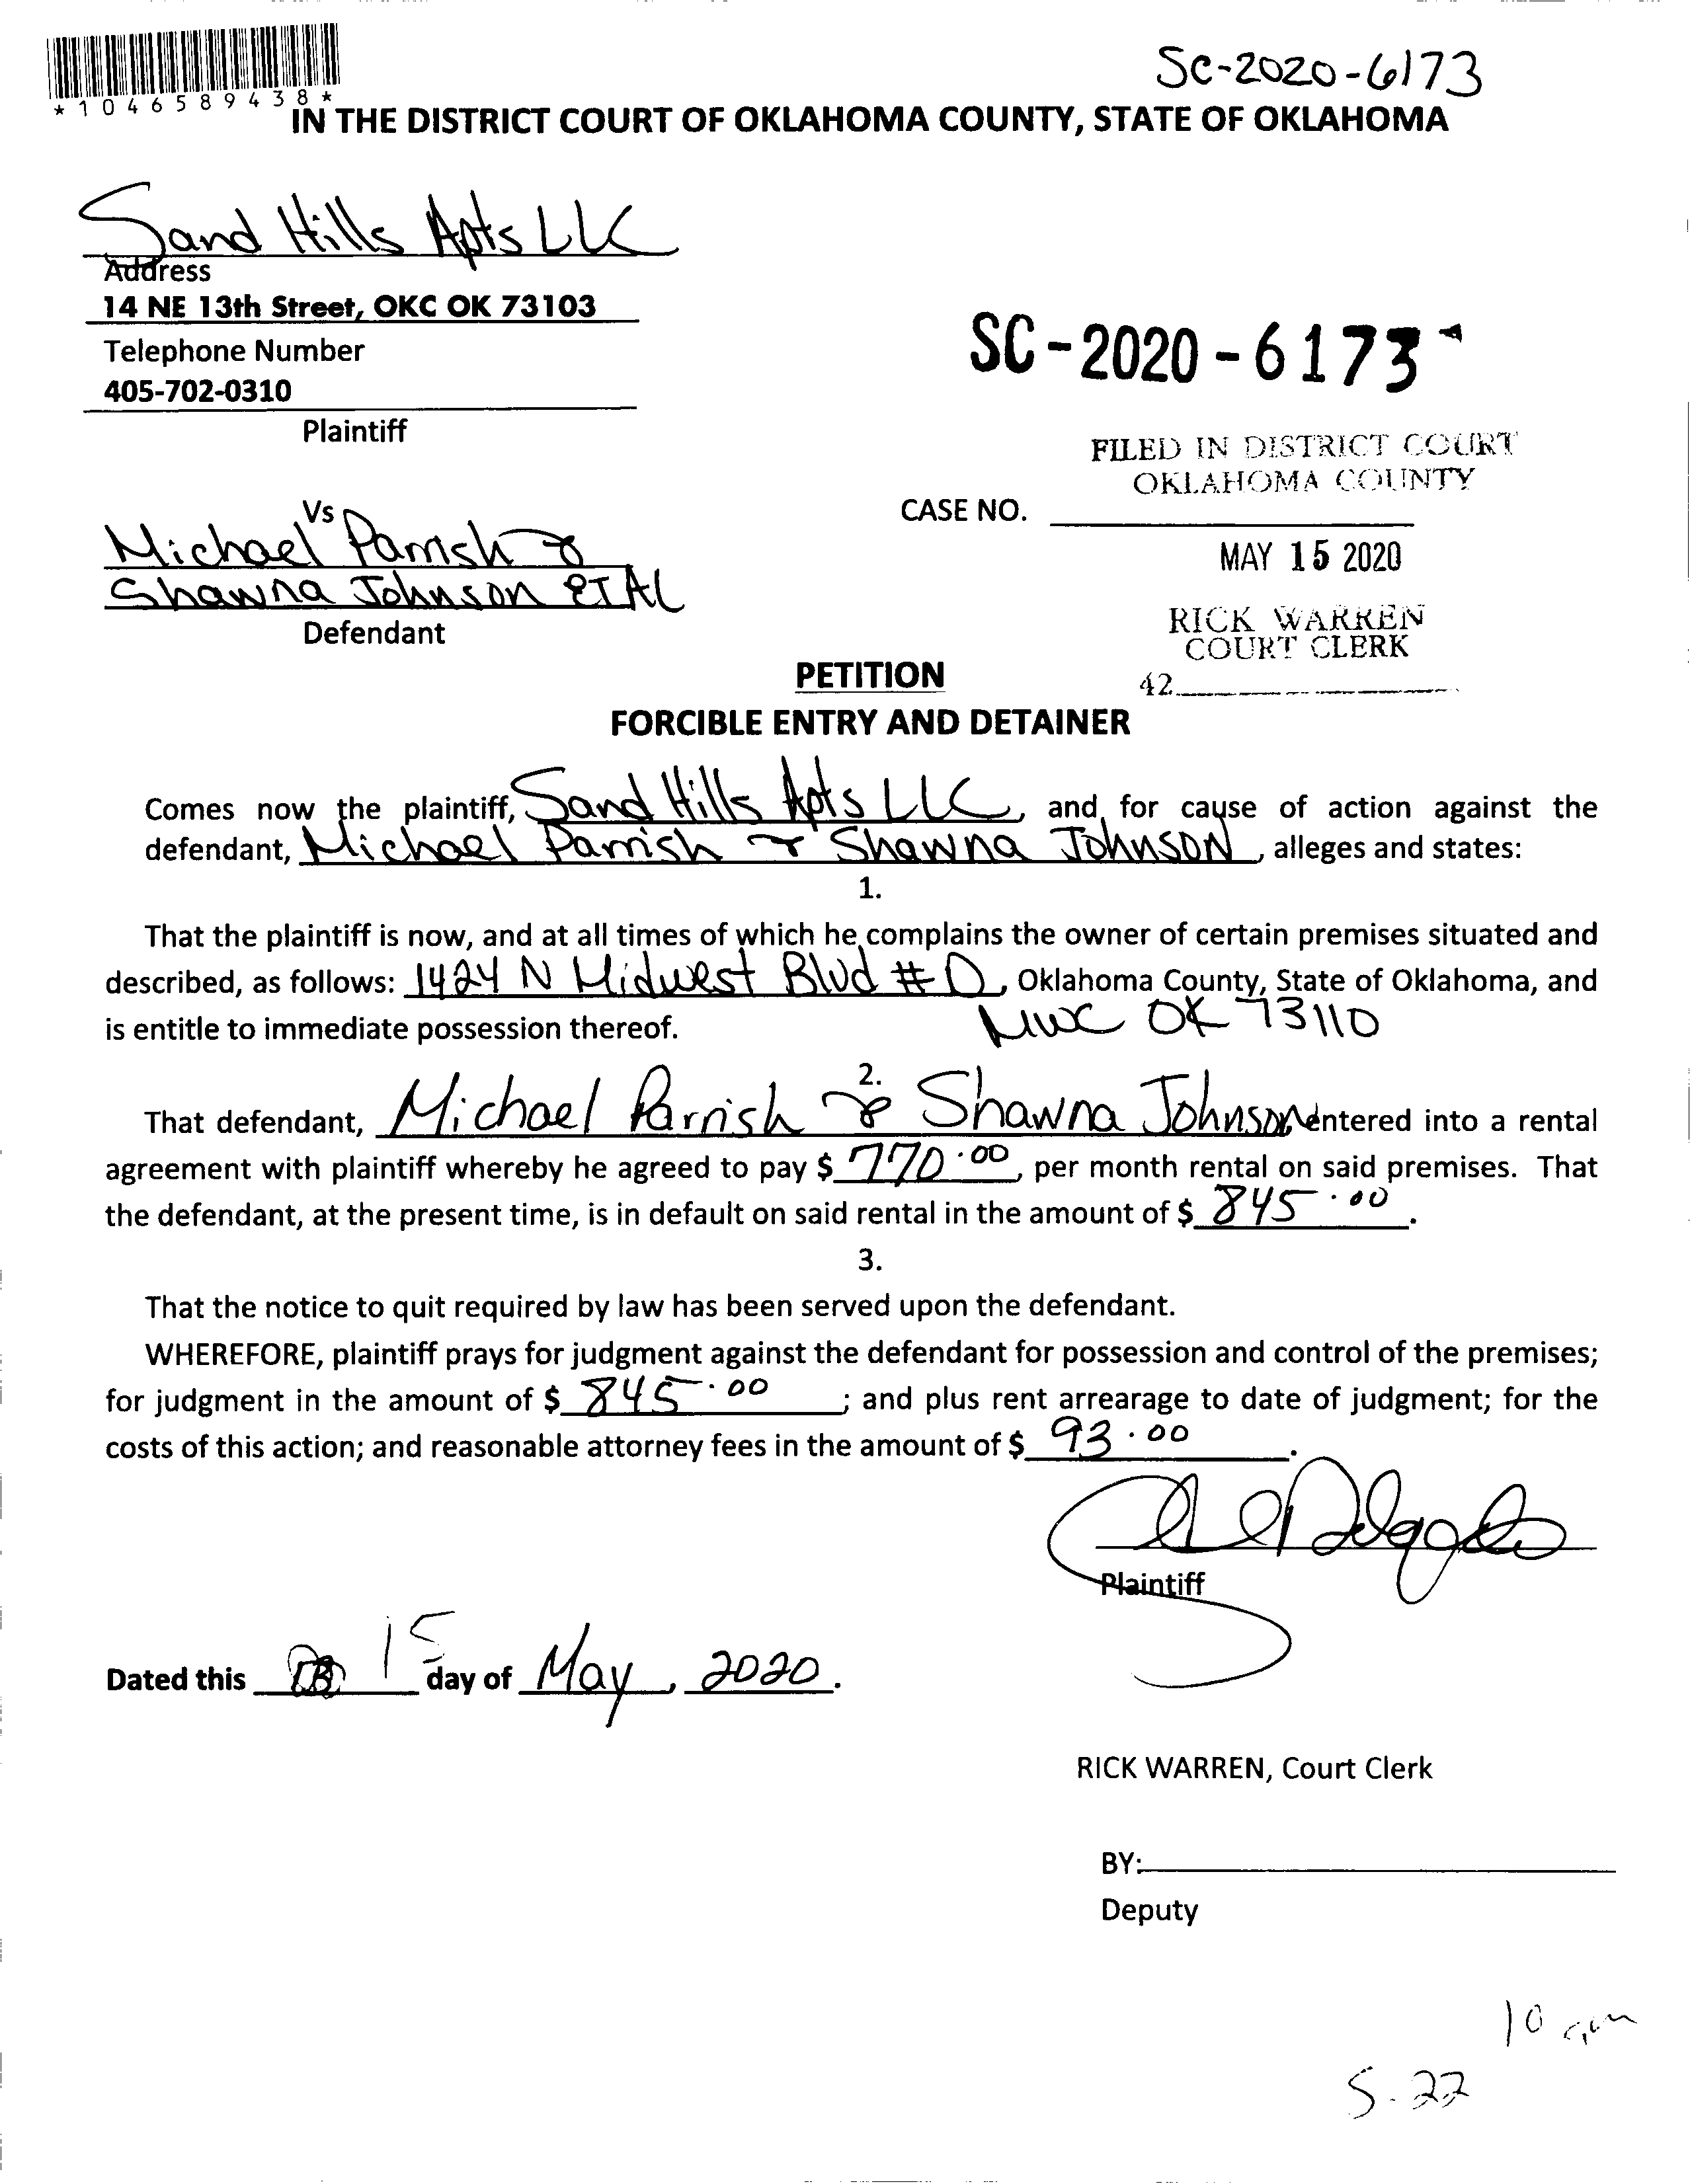 SC-2020-6173
*1046589438*
IN THE DISTRICT COURT OF OKLAHOMA COUNTY, STATE OF OKLAHOMA
Sand Hills Apts LLC
Address
14 NE 13th Street, OKC OK 73103
Telephone Number
405-702-0310
Plaintiff
SC-2020-6173
FILED IN DISTRICT COURT
OKLAHOMA COUNTY
CASE NO.
MAY 15 2020
RICK WARREN
COURT CLERK
42
Vs
Michael Parrish &
Shawna Johnson ETAL
Defendant
PETITION
FORCIBLE ENTRY AND DETAINER
Comes now the plaintiff, Sand Hills Apts LLC, and for cause of action against the
defendant, Michael Parrish & Shawna Johnson, alleges and states:
1.
That the plaintiff is now, and at all times of which he complains the owner of certain premises situated and
described, as follows: 1424 N Midwest Blvd # D, Oklahoma County, State of Oklahoma, and
is entitle to immediate possession thereof. MWC OK 73110
2.
That defendant, Michael Parrish & Shawna Johnson entered into a rental
agreement with plaintiff whereby he agreed to pay $ 770.00, per month rental on said premises. That
the defendant, at the present time, is in default on said rental in the amount of $ 845.00.
3.
That the notice to quit required by law has been served upon the defendant.
WHEREFORE, plaintiff prays for judgment against the defendant for possession and control of the premises;
for judgment in the amount of $ 845.00; and plus rent arrearage to date of judgment; for the
costs of this action; and reasonable attorney fees in the amount of $ 93.00.
Plaintiff
Dated this 15 day of May, 2020.
RICK WARREN, Court Clerk
BY:
Deputy
10 am
5-22